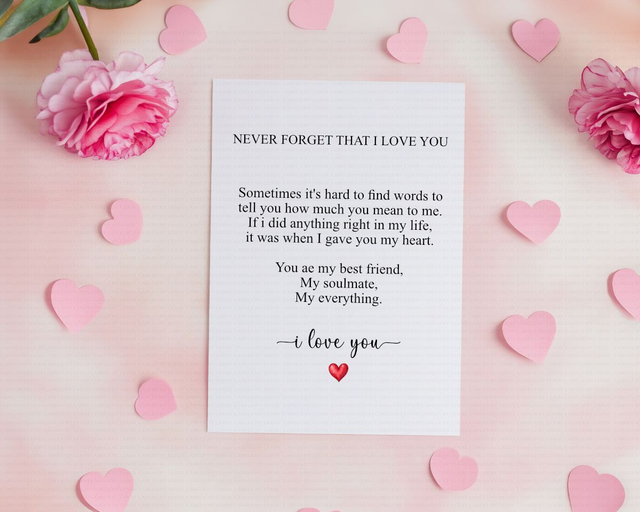 NEVER FORGET THAT I LOVE YOU
Sometimes it's hard to find words to
tell you how much you mean to me.
If i did anything right in my life,
it was when I gave you my heart.
You ae my best friend,
My soulmate,
My everything.
i love you